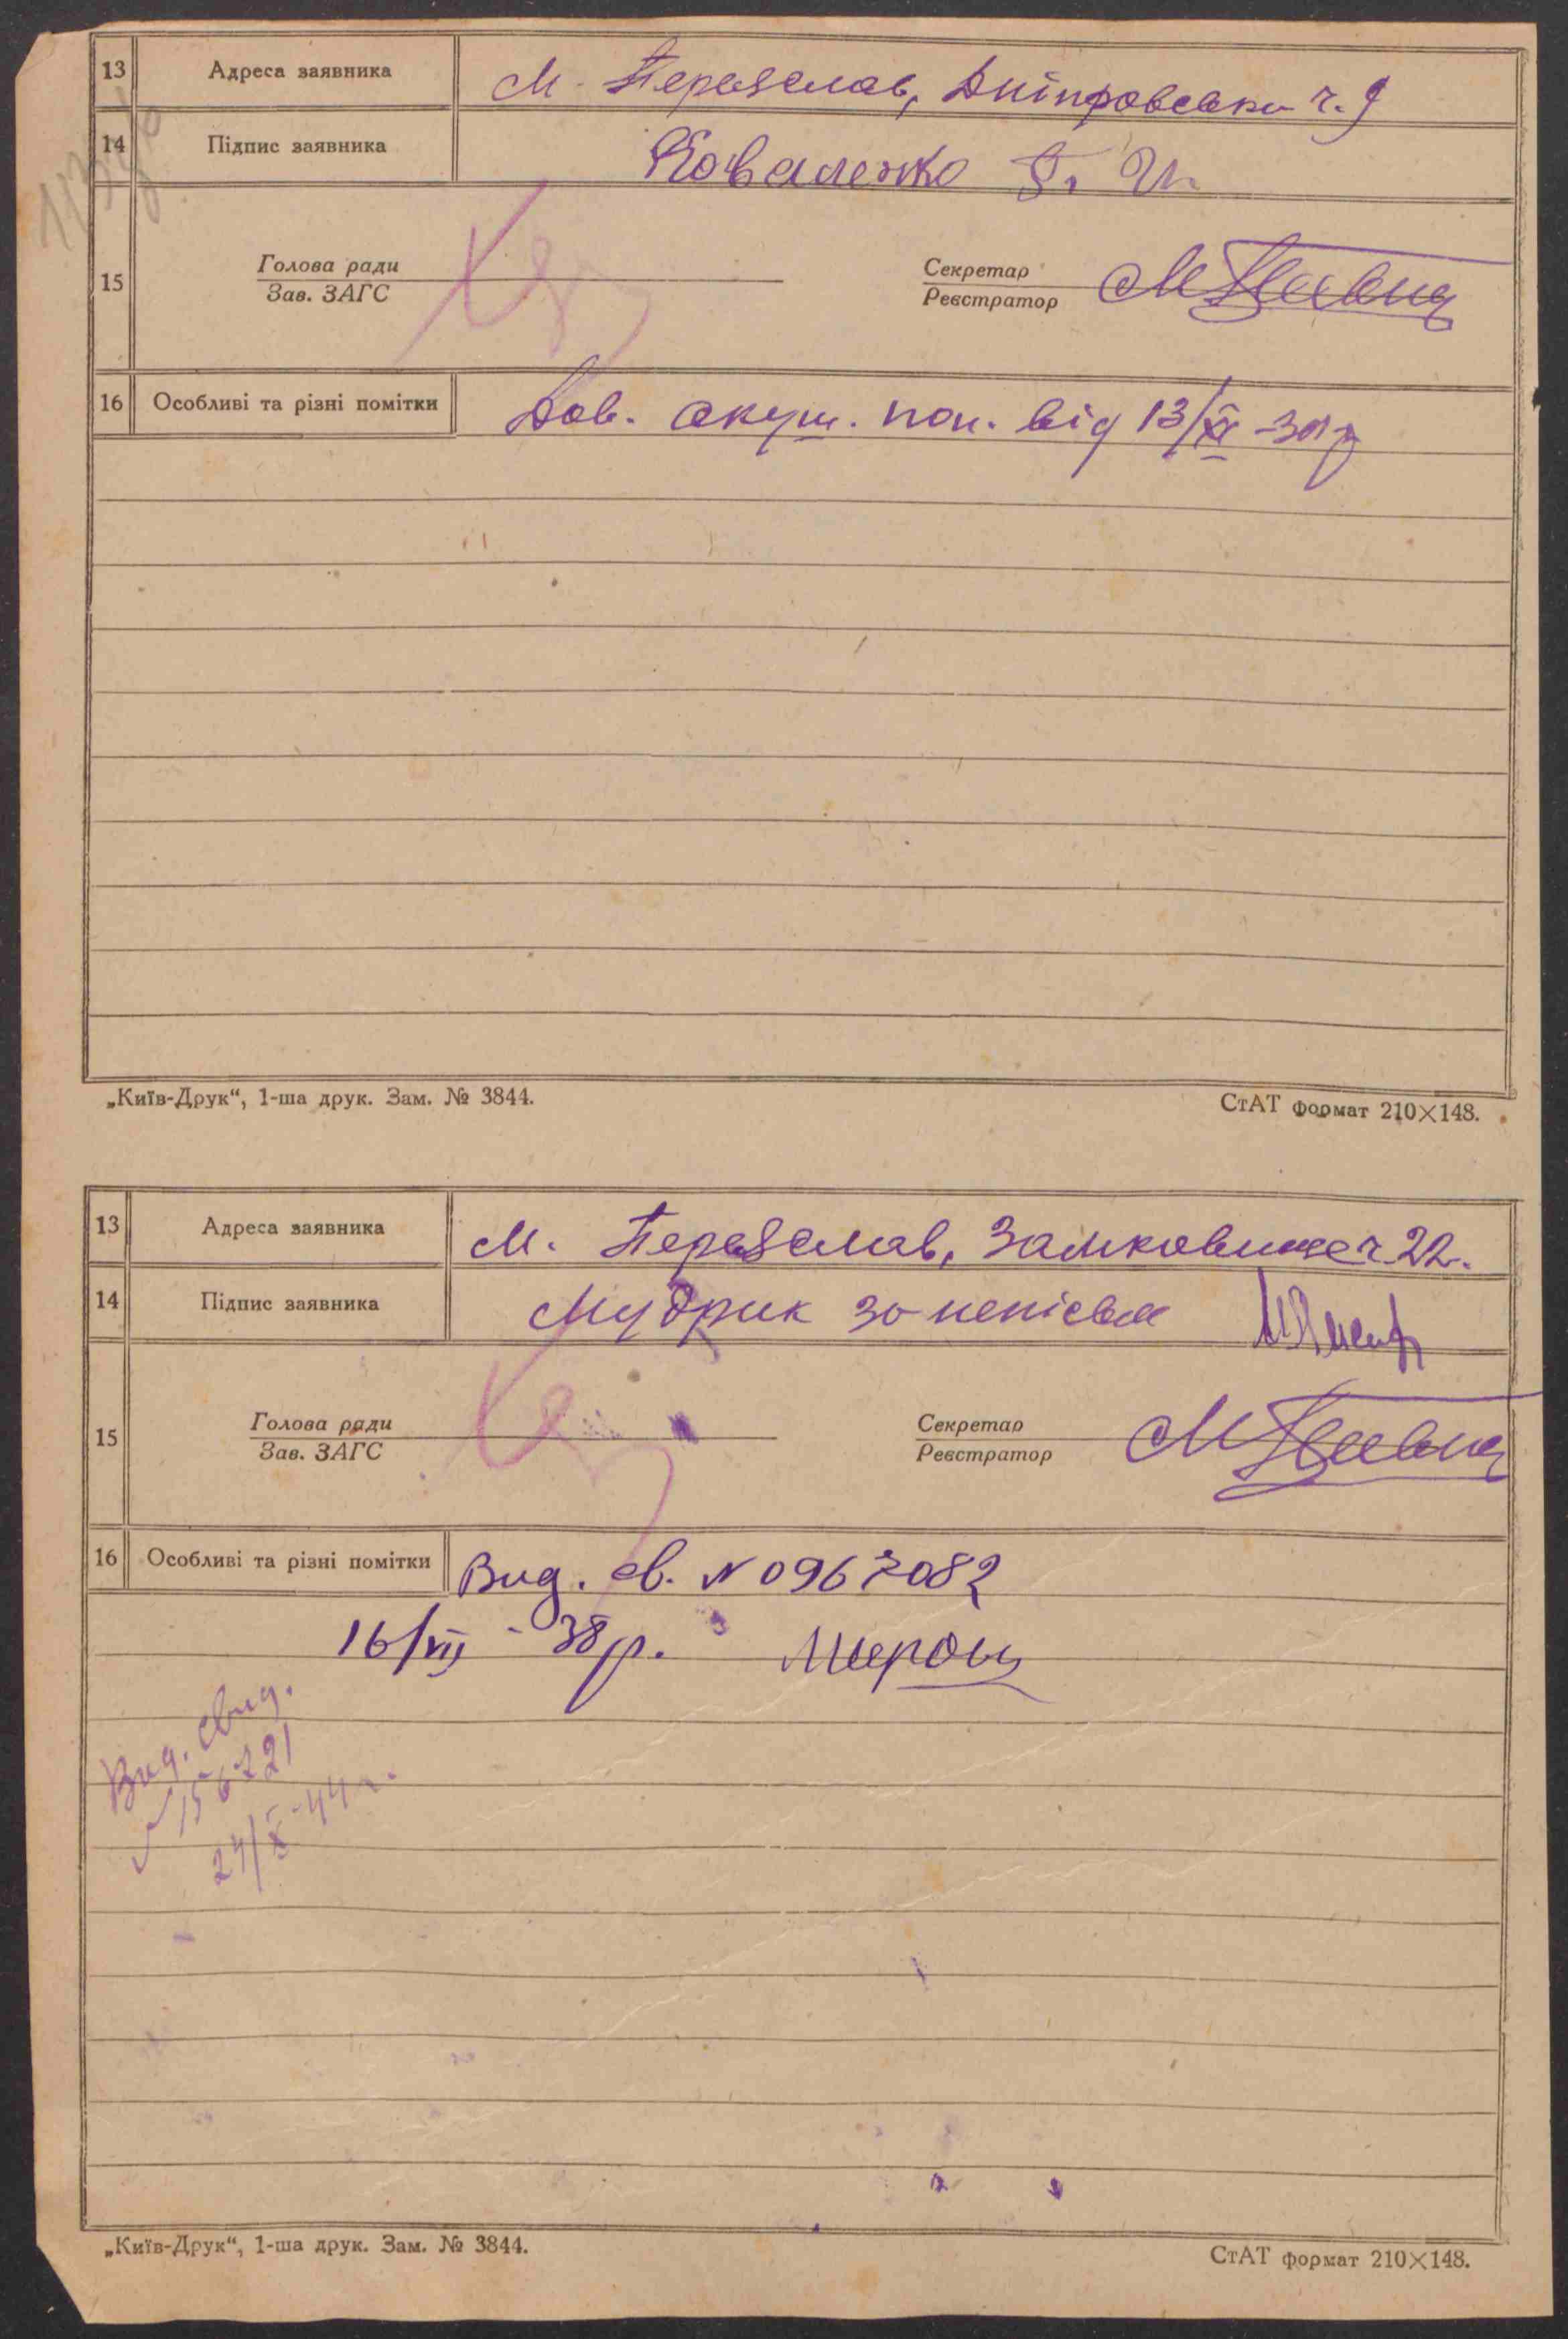 13 Адреса заявника м. Переяслав, Дніпровська ч. 9
14 Підпис заявника Коваленко
15 Голова ради
Зав. ЗАГС
Секретар
Реєстратор
16 Особливі та різні помітки Дов. акуш. пол. від 13/XI-30 р
„Київ-Друк“, 1-ша друк. Зам. № 3844. СтАТ формат 210×148.
13 Адреса заявника м. Переяслав, Замковище ч 22.
14 Підпис заявника Мудрик за неписьм
15 Голова ради
Зав. ЗАГС
Секретар
Реєстратор
16 Особливі та різні помітки Вид. св. № 0967082
16/VII - 38 р.
Вид. свид.
№ 156721
24/X-44 г.
„Київ-Друк“, 1-ша друк. Зам. № 3844. СтАТ формат 210×148.